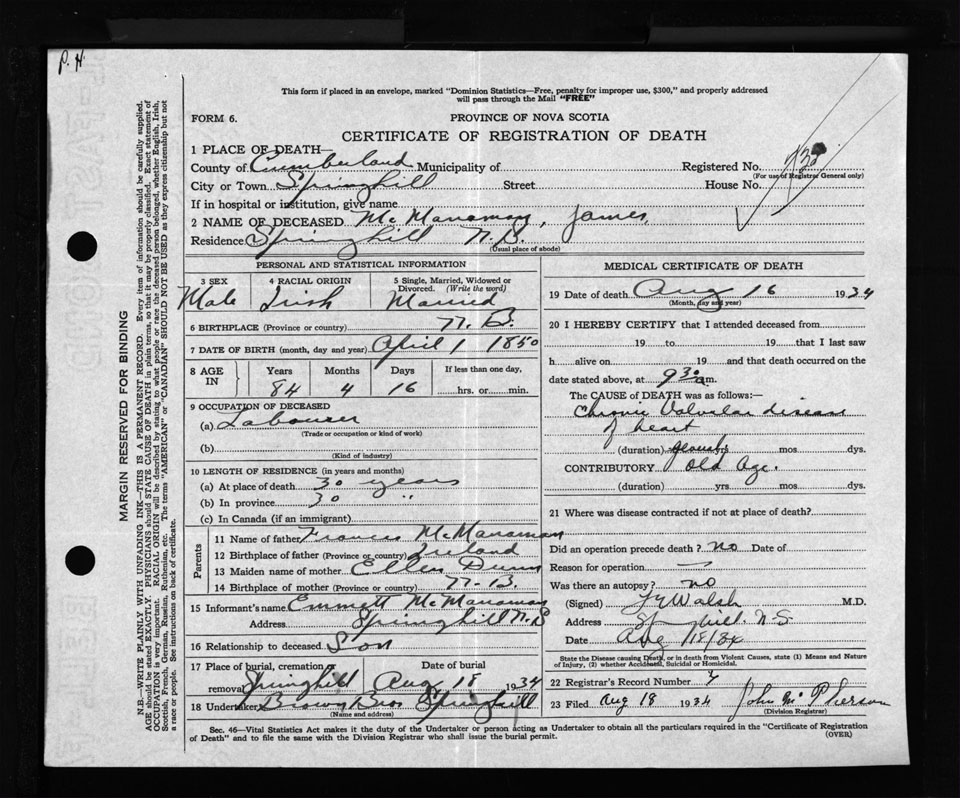 P. H.
This form if placed in an envelope, marked "Dominion Statistics—Free, penalty for improper use, $300," and properly addressed
will pass through the Mail "FREE"
FORM 6.
PROVINCE OF NOVA SCOTIA
CERTIFICATE OF REGISTRATION OF DEATH
1 PLACE OF DEATH—
County of Cumberland Municipality of Registered No.
(For use of Registrar General only)
City or Town Springhill Street House No.
If in hospital or institution, give name
2 NAME OF DECEASED McManaman, James.
Residence Springhill N.S.
(Usual place of abode)
PERSONAL AND STATISTICAL INFORMATION
3 SEX 4 RACIAL ORIGIN 5 Single, Married, Widowed or
Divorced. (Write the word)
Male Irish Married
6 BIRTHPLACE (Province or country) N. B.
7 DATE OF BIRTH (month, day and year) April 1 1850
8 AGE IN Years Months Days If less than one day,
84 4 16 hrs. or min.
9 OCCUPATION OF DECEASED
(a) Labourer
(Trade or occupation or kind of work)
(b)
(Kind of industry)
10 LENGTH OF RESIDENCE (in years and months)
(a) At place of death 30 years
(b) In province 30 "
(c) In Canada (if an immigrant)
Parents
11 Name of father Francis McManaman
12 Birthplace of father (Province or country) Ireland
13 Maiden name of mother Ellen Dunn
14 Birthplace of mother (Province or country) N. B.
15 Informant's name Emmett McManaman
Address Springhill N.S
16 Relationship to deceased Son
17 Place of burial, cremation Date of burial
removal Springhill Aug 18 1934
18 Undertaker Brown Bros Springhill
(Name and address)
MEDICAL CERTIFICATE OF DEATH
19 Date of death Aug 16 1934
(Month, day and year)
20 I HEREBY CERTIFY that I attended deceased from
19 to 19 that I last saw
h alive on 19 and that death occurred on the
date stated above, at 9 30 a m.
The CAUSE of DEATH was as follows:—
Chronic Valvular disease
of heart
(duration) yrs mos dys.
CONTRIBUTORY Old Age.
(duration) yrs mos dys.
21 Where was disease contracted if not at place of death?
Did an operation precede death? no Date of
Reason for operation —
Was there an autopsy? no
(Signed) Walsh M.D.
Address Springhill. N.S.
Date Aug 18/34
State the Disease causing Death, or in death from Violent Causes, state (1) Means and Nature
of Injury, (2) whether Accidental, Suicidal or Homicidal.
22 Registrar's Record Number
23 Filed Aug 18 1934 John McPherson
(Division Registrar)
Sec. 46—Vital Statistics Act makes it the duty of the Undertaker or person acting as Undertaker to obtain all the particulars required in the "Certificate of Registration
of Death" and to file the same with the Division Registrar who shall issue the burial permit.
(OVER)
MARGIN RESERVED FOR BINDING
N.B.—WRITE PLAINLY WITH UNFADING INK—THIS IS A PERMANENT RECORD. Every item of information should be carefully supplied.
AGE should be stated EXACTLY. PHYSICIANS should STATE CAUSE OF DEATH in plain terms, so that it may be properly classified. Exact statement of
OCCUPATION is very important. RACIAL ORIGIN will be described by stating to what people or race the deceased person belonged, whether English, Irish,
Scottish, French, German, Russian, Ruthenian, etc. The terms "AMERICAN" or "CANADIAN" SHOULD NOT BE USED as they express citizenship but not
a race or people. See instructions on back of certificate.